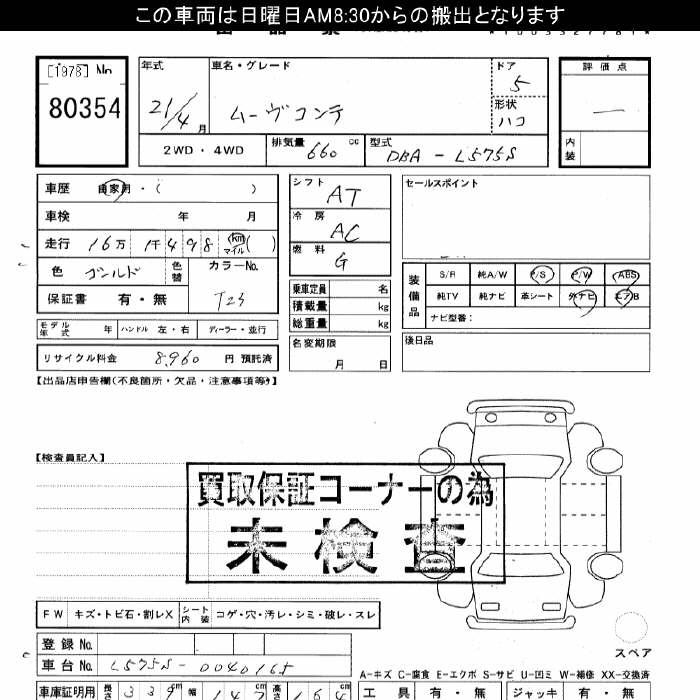 この車両は日曜日AM8:30からの搬出となります
[1978] No
80354
年式
21/4月
車名・グレード
ムーヴコンテ
ドア
5
形状
ハコ
評価点
内装
2WD・4WD
排気量 660 cc
型式 DBA-L575S
車歴 自家用・( )
車検 年 月
走行 16万 1千498 km マイル( )
色 ゴールド 色替 カラーNo. T23
保証書 有・無
モデル年式 年 ハンドル 左・右 ディーラー・並行
リサイクル料金 8,960 円 預託済
シフト AT
冷房 AC
燃料 G
乗車定員 名
積載量 kg
総重量 kg
名変期限
月 日
セールスポイント
装備品
S/R 純A/W P/S P/W ABS
純TV 純ナビ 革シート 外ナビ エアB
ナビ型番:
後日品
【出品店申告欄(不良箇所・欠品・注意事項等)】
【検査員記入】
買取保証コーナーの為
未検査
FW キズ・トビ石・割レX シート内装 コゲ・穴・汚レ・シミ・破レ・スレ
登録No.
車台No. L575S-0040165
スペア
A-キズ C-腐食 E-エクボ S-サビ U-凹ミ W-補修 XX-交換済
車庫証明用 長さ 339cm 幅 147 高さ 164
工具 有・無 ジャッキ 有・無